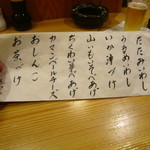 たたみいわし
うるめいわし
いか沖づけ
山いもいそべあげ
ちくわいそべあげ
カマンベールチーズ
おしんこ
お茶づけ